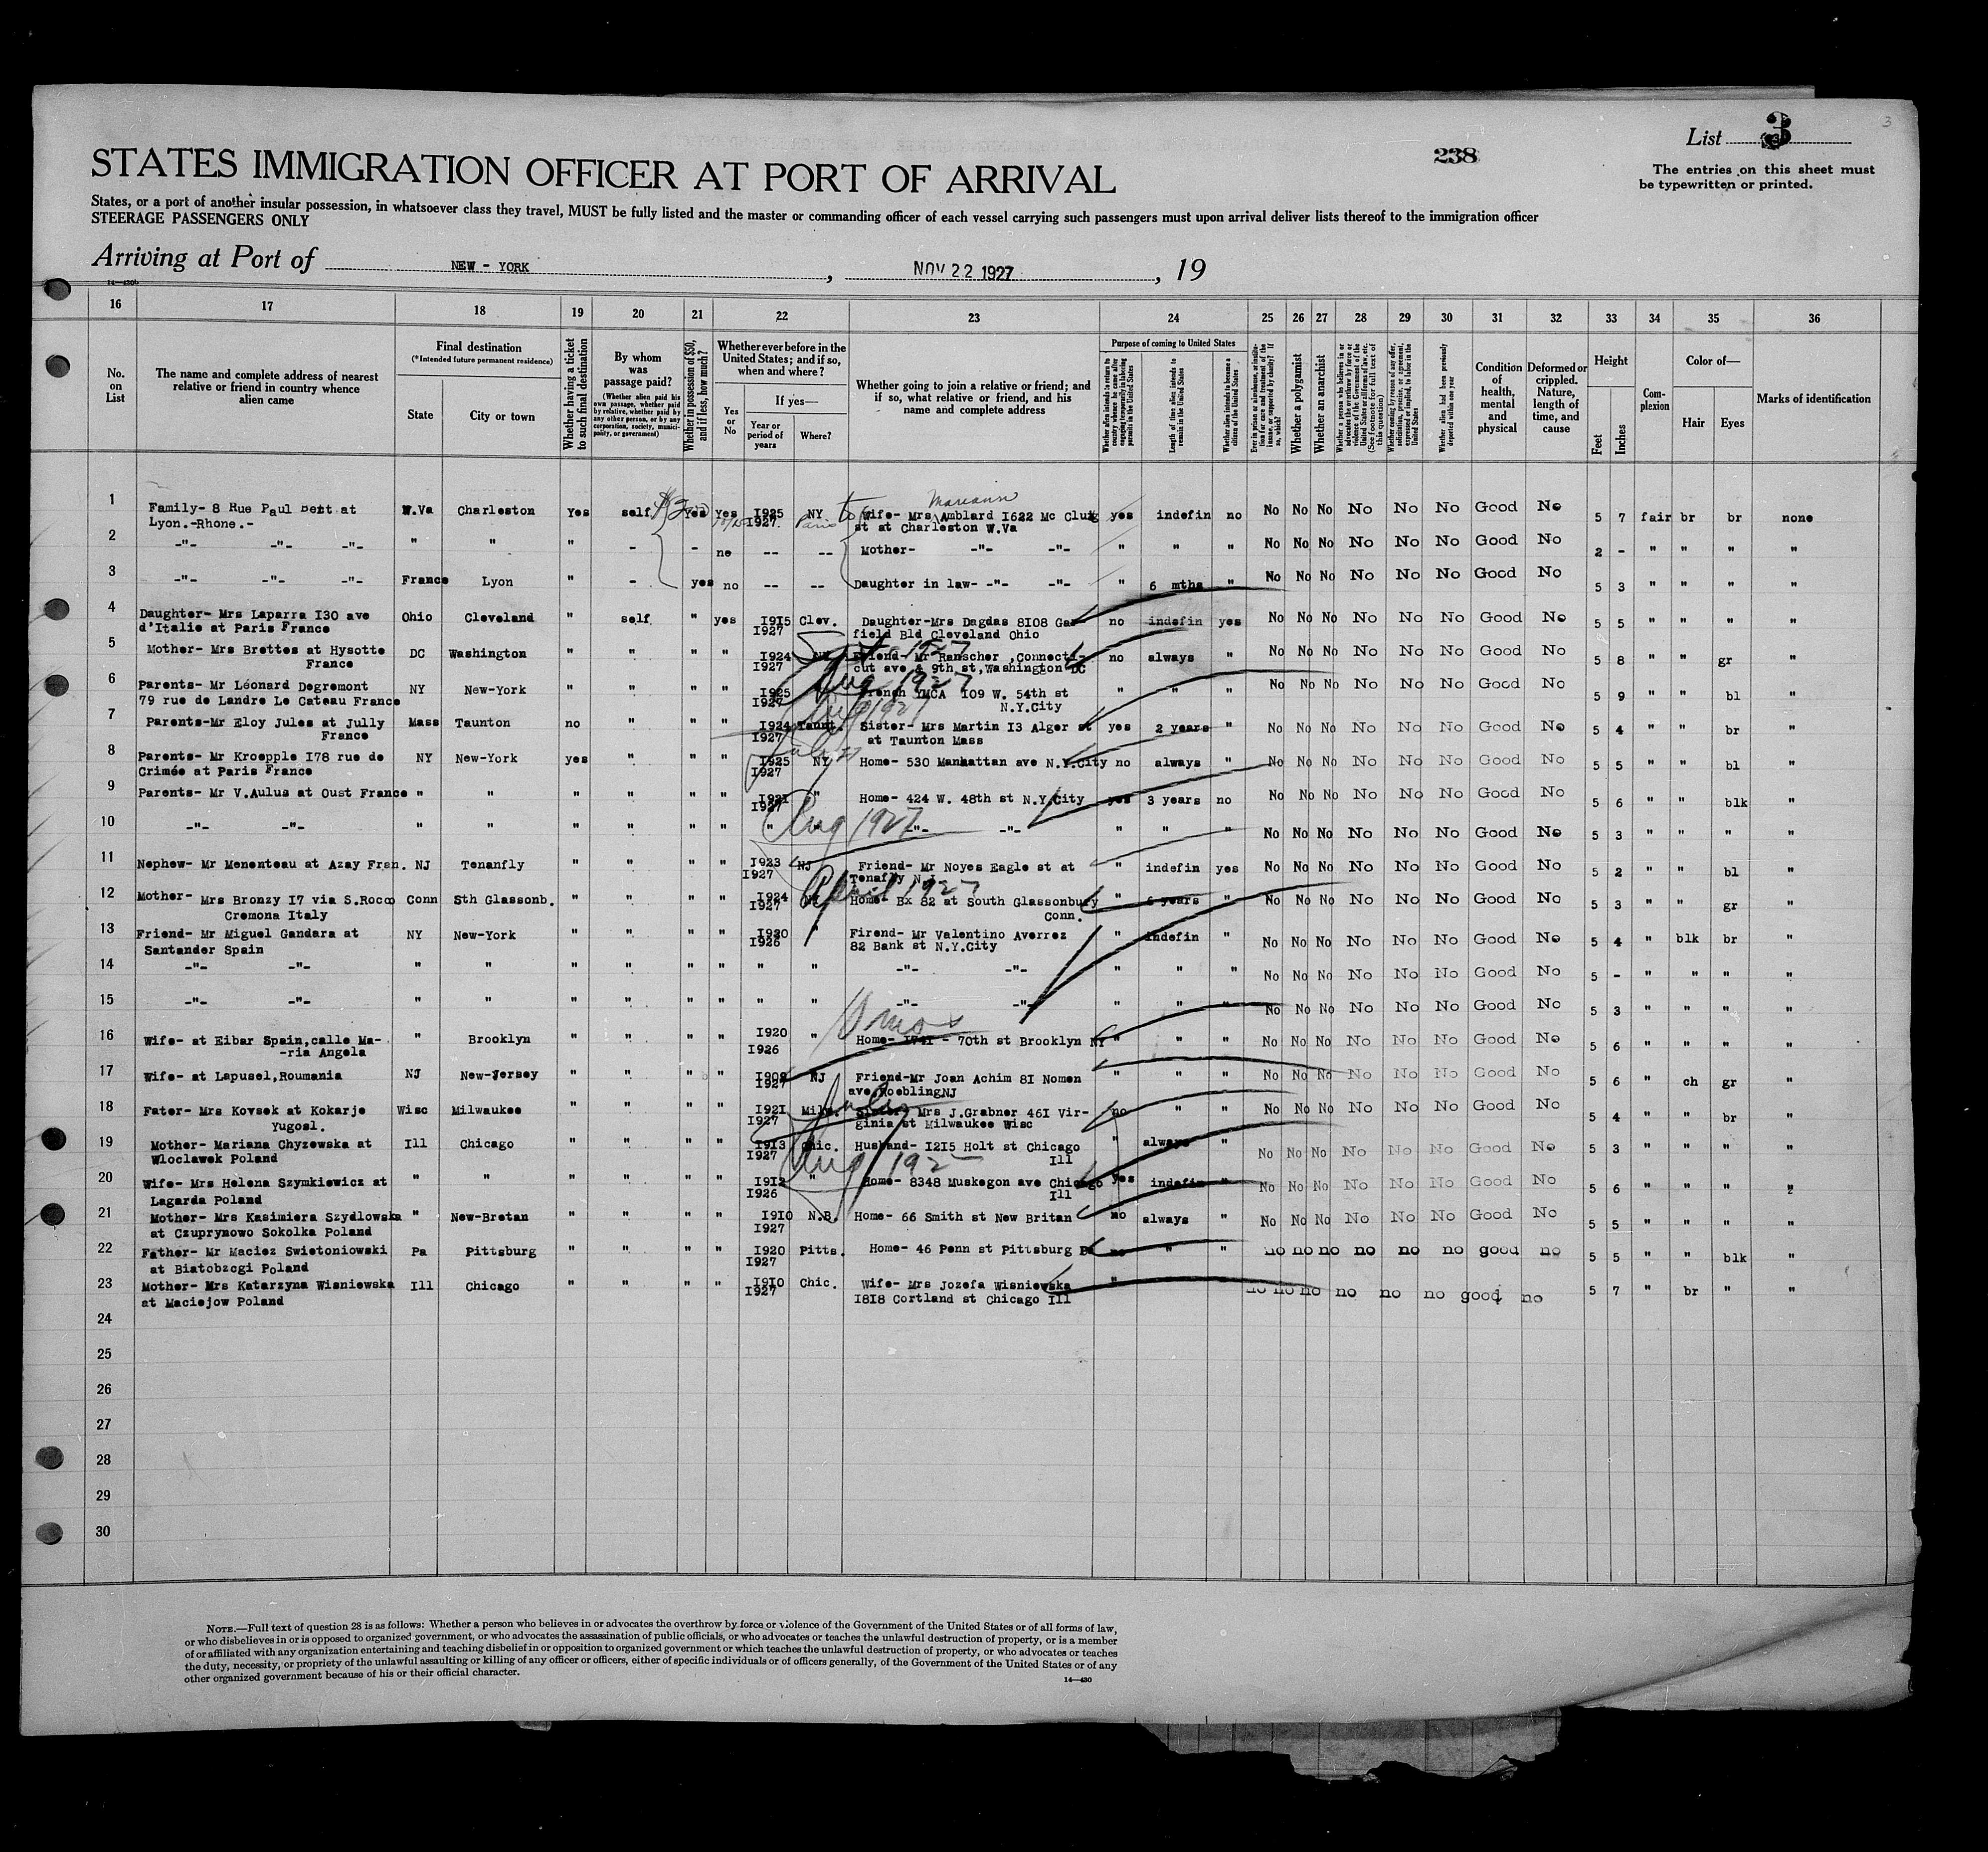 List 3
3
238
The entries on this sheet must
be typewritten or printed.
STATES IMMIGRATION OFFICER AT PORT OF ARRIVAL
States, or a port of another insular possession, in whatsoever class they travel, MUST be fully listed and the master or commanding officer of each vessel carrying such passengers must upon arrival deliver lists thereof to the immigration officer
STEERAGE PASSENGERS ONLY
Arriving at Port of NEW - YORK , NOV 22 1927 , 19
16 17 18 19 20 21 22 23 24 25 26 27 28 29 30 31 32 33 34 35 36
No. on List
The name and complete address of nearest relative or friend in country whence alien came
Final destination
(*Intended future permanent residence)
State
City or town
Whether having a ticket to such final destination
By whom was passage paid?
(Whether alien paid his own passage, whether paid by relative, whether paid by any other person, or by any corporation, society, municipality, or government)
Whether in possession of $50, and if less, how much?
Whether ever before in the United States; and if so, when and where?
Yes or No
If yes—
Year or period of years
Where?
Whether going to join a relative or friend; and if so, what relative or friend, and his name and complete address
Purpose of coming to United States
Length of time alien intends to remain in the United States
Whether alien intends to become a citizen of the United States
Whether a polygamist
Whether an anarchist
Condition of health, mental and physical
Deformed or crippled. Nature, length of time, and cause
Height
Feet
Inches
Complexion
Color of—
Hair
Eyes
Marks of identification
1 Family- 8 Rue Paul Bert at W.Va Charleston Yes self Yes Yes I925 NY Wife- Mrs Amblard I622 Mc Clung yes indefin no No No No No No No Good No 5 7 fair br br none
Lyon.-Rhone.- I927 Paris st at Charleston W.Va
2 -"- -"- -"- " " " - - no -- -- Mother- -"- -"- " " " No No No No No No Good No 2 - " " " "
3 -"- -"- -"- France Lyon " - yes no -- -- Daughter in law- -"- -"- " 6 mths " No No No No No No Good No 5 3 " " " "
4 Daughter- Mrs Laparra I30 ave Ohio Cleveland " self " yes I9I5 Clev. Daughter-Mrs Dagdas 8I08 Gar no indefin yes No No No No No No Good No 5 5 " " " "
d'Italie at Paris France I927 field Bld Cleveland Ohio
5 Mother- Mrs Brettes at Hysotte DC Washington " " " " I924 Friend- Mr Ranscher ,Connecti- no always " No No No No No No Good No 5 8 " " gr "
France I927 cut ave & 9th st,Washington DC
6 Parents- Mr Léonard Degremont NY New-York " " " " I925 French YMCA I09 W. 54th st " " " No No No No No No Good No 5 9 " " bl "
79 rue de Landre Le Cateau France I927 N.Y.City
7 Parents-Mr Eloy Jules at Jully Mass Taunton no " " " I924 Taunt. Sister- Mrs Martin I3 Alger st yes 2 years " No No No No No No Good No 5 4 " " br "
France I927 at Taunton Mass
8 Parents- Mr Kroepple I78 rue de NY New-York yes " " " I925 NY Home- 530 Manhattan ave N.Y.City no always " No No No No No No Good No 5 5 " " bl "
Crimée at Paris France I927
9 Parents- Mr V.Aulus at Oust France " " " " " " I92I " Home- 424 W. 48th st N.Y.City yes 3 years no No No No No No No Good No 5 6 " " blk "
I927
10 -"- -"- " " " " " " " Aug 1927 -"- -"- " " " No No No No No No Good No 5 3 " " " "
11 Nephew- Mr Menenteau at Azay Fran. NJ Tenanfly " " " " I923 NJ Friend- Mr Noyes Eagle st at " indefin yes No No No No No No Good No 5 2 " " bl "
I927 Tenafly NJ
12 Mother- Mrs Bronzy I7 via S.Rocco Conn Sth Glassonb. " " " " I924 Home- Bx 82 at South Glassonbury " 6 years " No No No No No No Good No 5 3 " " gr "
Cremona Italy I927 April 1927 Conn.
13 Friend- Mr Miguel Gandara at NY New-York " " " " I920 " Firend- Mr Valentino Averrez " indefin " No No No No No No Good No 5 4 " blk br "
Santander Spain I926 82 Bank st N.Y.City
14 -"- -"- " " " " " " " " -"- -"- " " " No No No No No No Good No 5 - " " " "
15 -"- -"- " " " " " " " " -"- -"- " " " No No No No No No Good No 5 3 " " " "
16 Wife- at Eibar Spain,calle Ma- " Brooklyn " " " " I920 " Home- I74I - 70th st Brooklyn NY " " " No No No No No No Good No 5 6 " " " "
-ria Angela I926
17 Wife- at Lapusel,Roumania NJ New-Jersey " " " " I909 NJ Friend-Mr Joan Achim 8I Nomen " " " No No No No No No Good No 5 6 " ch gr "
I927 ave,RoeblingNJ
18 Fater- Mrs Kovsek at Kokarje Wisc Milwaukee " " " " I92I Milw. Sister- Mrs J.Grabner 46I Vir- no " " No No No No No No Good No 5 4 " " br "
Yugosl. I927 ginia st Milwaukee Wisc
19 Mother- Mariana Chyzewska at Ill Chicago " " " " I9I3 Chic. Husband- I2I5 Holt st Chicago " always " No No No No No No Good No 5 3 " " " "
Wloclawek Poland I927 Ill
20 Wife- Mrs Helena Szymkiewicz at " " " " " " I9I2 " Home- 8348 Muskegon ave Chicago yes indefin " No No No No No No Good No 5 6 " " " "
Lagarda Poland I926 Ill
21 Mother- Mrs Kasimiera Szydlowska " New-Bretan " " " " I9I0 N.B. Home- 66 Smith st New Britan no always " No No No No No No Good No 5 5 " " " "
at Czuprynowo Sokolka Poland I927
22 Father- Mr Maciez Swietoniowski Pa Pittsburg " " " " I920 Pitts. Home- 46 Penn st Pittsburg Pa no " " no no no no no no good no 5 5 " " blk "
at Biatobzegi Poland I927
23 Mother- Mrs Katarzyna Wisniewska Ill Chicago " " " " I9I0 Chic. Wife- Mrs Jozefa Wisniewska " no no no no no no good no 5 7 " br " "
at Maciejow Poland I927 I8I8 Cortland st Chicago Ill
24
25
26
27
28
29
30
NOTE.—Full text of question 28 is as follows: Whether a person who believes in or advocates the overthrow by force or violence of the Government of the United States or of all forms of law,
or who disbelieves in or is opposed to organized government, or who advocates the assassination of public officials, or who advocates or teaches the unlawful destruction of property, or is a member
of or affiliated with any organization entertaining and teaching disbelief in or opposition to organized government or which teaches the unlawful destruction of property, or who advocates or teaches
the duty, necessity, or propriety of the unlawful assaulting or killing of any officer or officers, either of specific individuals or of officers generally, of the Government of the United States or of any
other organized government because of his or their official character.
14—430